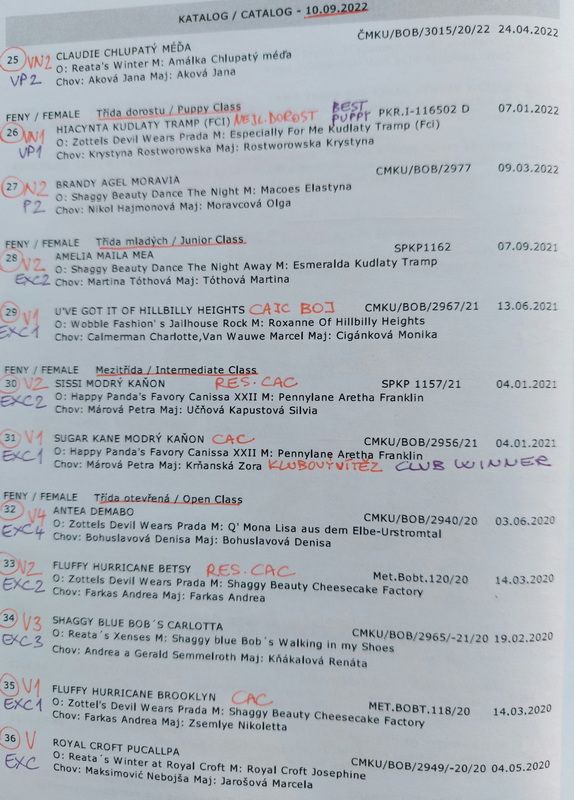 KATALOG / CATALOG - 10.09.2022
25 VN2 CLAUDIE CHLUPATÝ MÉĎA ČMKU/BOB/3015/20/22 24.04.2022
VP2 O: Reata's Winter M: Amálka Chlupatý méďa
Chov: Aková Jana Maj: Aková Jana
FENY / FEMALE Třída dorostu / Puppy Class
26 VN1 HIACYNTA KUDLATY TRAMP (FCI) NEJL. DOROST BEST PUPPY PKR.I-116502 D 07.01.2022
VP1 O: Zottels Devil Wears Prada M: Especially For Me Kudlaty Tramp (Fci)
Chov: Krystyna Rostworowska Maj: Rostworowska Krystyna
27 N2 BRANDY AGEL MORAVIA CMKU/BOB/2977 09.03.2022
P2 O: Shaggy Beauty Dance The Night M: Macoes Elastyna
Chov: Nikol Hajmonová Maj: Moravcová Olga
FENY / FEMALE Třída mladých / Junior Class
28 V2 AMELIA MAILA MEA SPKP1162 07.09.2021
EXC2 O: Shaggy Beauty Dance The Night Away M: Esmeralda Kudlaty Tramp
Chov: Martina Tóthová Maj: Tóthová Martina
29 V1 U'VE GOT IT OF HILLBILLY HEIGHTS CAJC BOJ CMKU/BOB/2967/21 13.06.2021
EXC1 O: Wobble Fashion' s Jailhouse Rock M: Roxanne Of Hillbilly Heights
Chov: Calmerman Charlotte,Van Wauwe Marcel Maj: Cigánková Monika
FENY / FEMALE Mezitřída / Intermediate Class
30 V2 SISSI MODRÝ KAŇON RES. CAC SPKP 1157/21 04.01.2021
EXC2 O: Happy Panda's Favory Canissa XXII M: Pennylane Aretha Franklin
Chov: Márová Petra Maj: Učňová Kapustová Silvia
31 V1 SUGAR KANE MODRÝ KAŇON CAC CMKU/BOB/2956/21 04.01.2021
EXC1 O: Happy Panda's Favory Canissa XXII M: Pennylane Aretha Franklin
Chov: Márová Petra Maj: Krňanská Zora KLUBOVÝ VÍTĚZ CLUB WINNER
FENY / FEMALE Třída otevřená / Open Class
32 V4 ANTEA DEMABO CMKU/BOB/2940/20 03.06.2020
EXC4 O: Zottels Devil Wears Prada M: Q' Mona Lisa aus dem Elbe-Urstromtal
Chov: Bohuslavová Denisa Maj: Bohuslavová Denisa
33 V2 FLUFFY HURRICANE BETSY RES. CAC Met.Bobt.120/20 14.03.2020
EXC2 O: Zottels Devil Wears Prada M: Shaggy Beauty Cheesecake Factory
Chov: Farkas Andrea Maj: Farkas Andrea
34 V3 SHAGGY BLUE BOB´S CARLOTTA CMKU/BOB/2965/-21/20 19.02.2020
EXC3 O: Reata´s Xenses M: Shaggy blue Bob´s Walking in my Shoes
Chov: Andrea a Gerald Semmelroth Maj: Kňákalová Renáta
35 V1 FLUFFY HURRICANE BROOKLYN CAC MET.BOBT.118/20 14.03.2020
EXC1 O: Zottel's Devil Wears Prada M: Shaggy Beauty Cheesecake Factory
Chov: Farkas Andrea Maj: Zsemlye Nikoletta
36 V ROYAL CROFT PUCALLPA CMKU/BOB/2949/-20/20 04.05.2020
EXC O: Reata´s Winter at Royal Croft M: Royal Croft Josephine
Chov: Maksimović Nebojša Maj: Jarošová Marcela